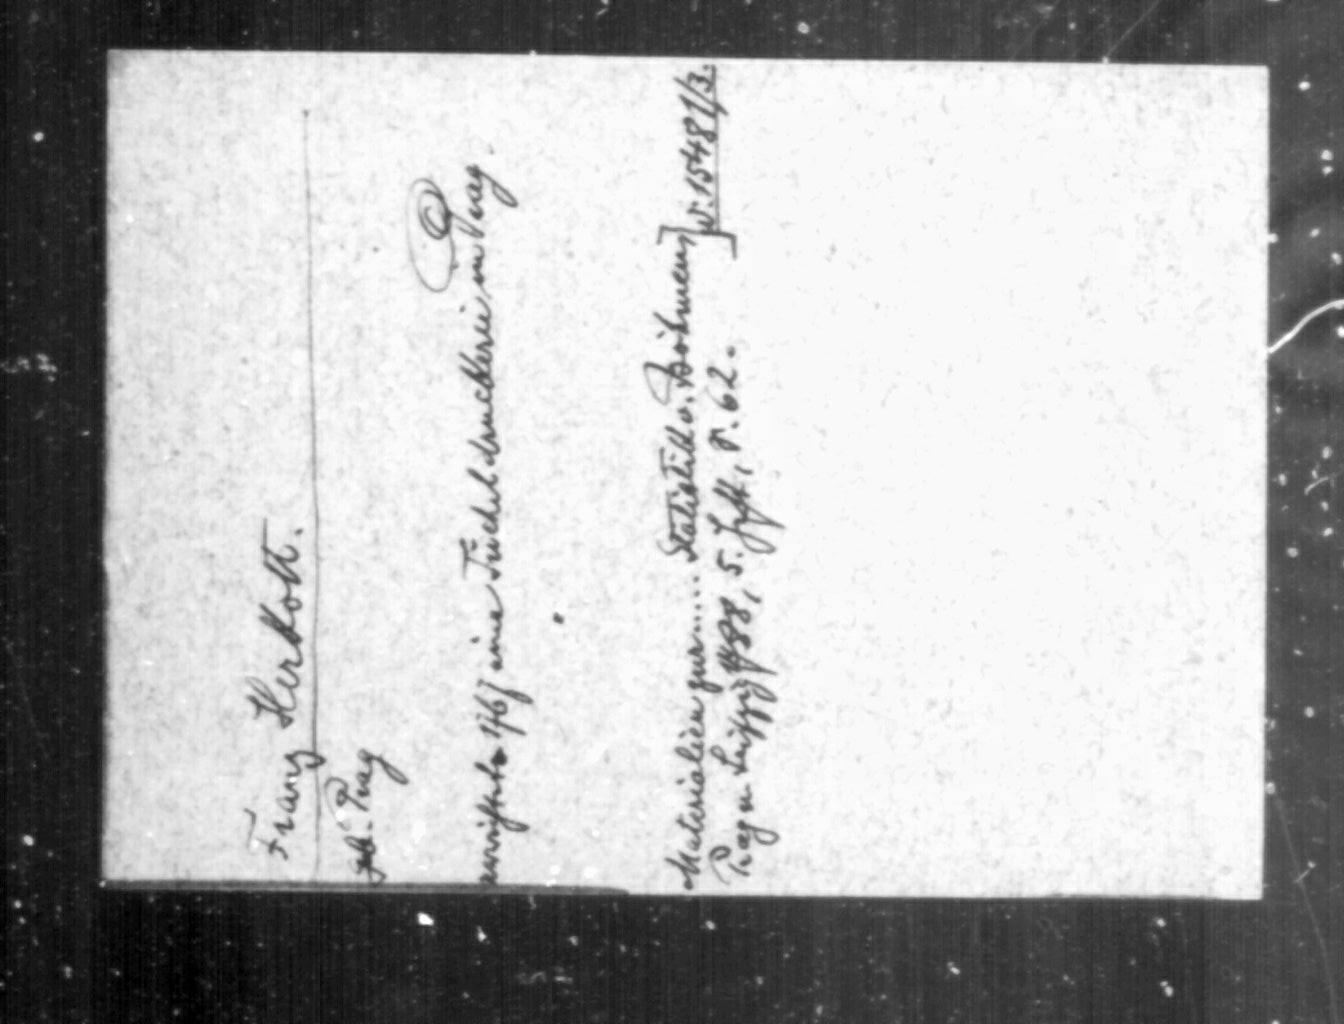 Franz Herkott.
geb. Prag
errichtete 1767 eine Tüchelsdruckerei in Prag.
Materialien zur..... Statistik v. Böhmen]
[W. 15481/3.
Prag u. Leipzig 1788, 5. Heft, S. 62.